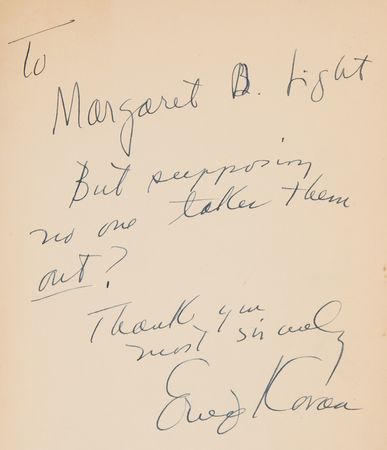 To
Margaret B. Light
But supposing
no one takes them
out?
Thank you
most sincerely